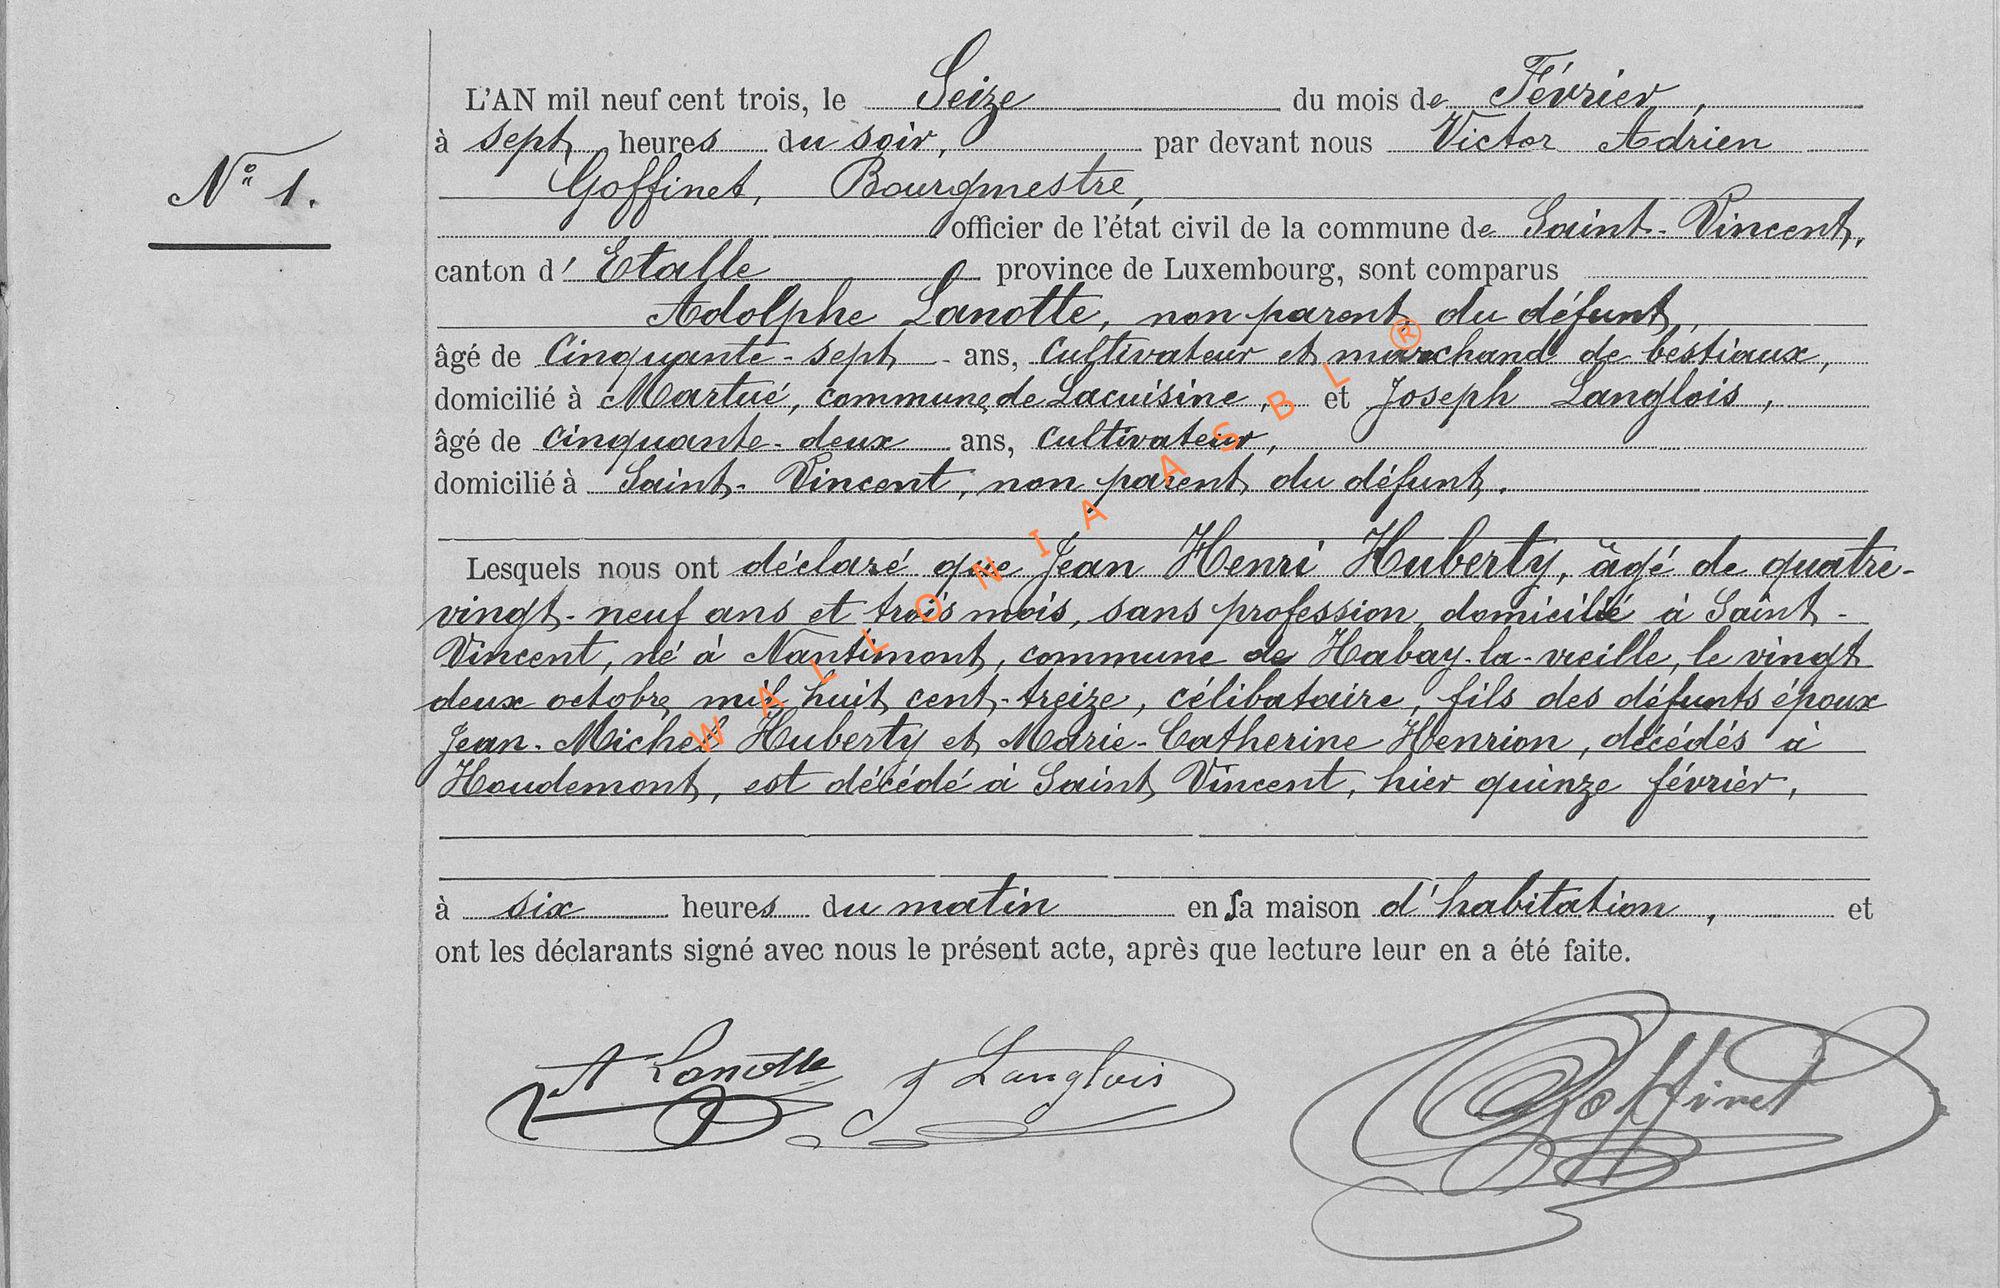 N° 1.
L'AN mil neuf cent trois, le Seize du mois de Février,
à sept heures du soir, par devant nous Victor Adrien
Goffinet, Bourgmestre,
officier de l'état civil de la commune de Saint-Vincent,
canton d' Etalle province de Luxembourg, sont comparus
Adolphe Lanotte, non parent du défunt,
âgé de cinquante-sept ans, cultivateur et marchand de bestiaux,
domicilié à Martué, commune de Lacuisine, et Joseph Langlois,
âgé de cinquante-deux ans, cultivateur,
domicilié à Saint-Vincent, non parent du défunt.
Lesquels nous ont déclaré que Jean Henri Huberty, âgé de quatre-
vingt-neuf ans et trois mois, sans profession, domicilié à Saint-
Vincent, né à Nantimont, commune de Habay-la-vieille, le vingt
deux octobre mil huit cent-treize, célibataire, fils des défunts époux
Jean-Michel Huberty et Marie-Catherine Henrion, décédés à
Houdemont, est décédé à Saint Vincent, hier quinze février,
à six heures du matin en sa maison d'habitation, et
ont les déclarants signé avec nous le présent acte, après que lecture leur en a été faite.
A Lanotte J Langlois Goffinet
WALLONIA ASBL ®